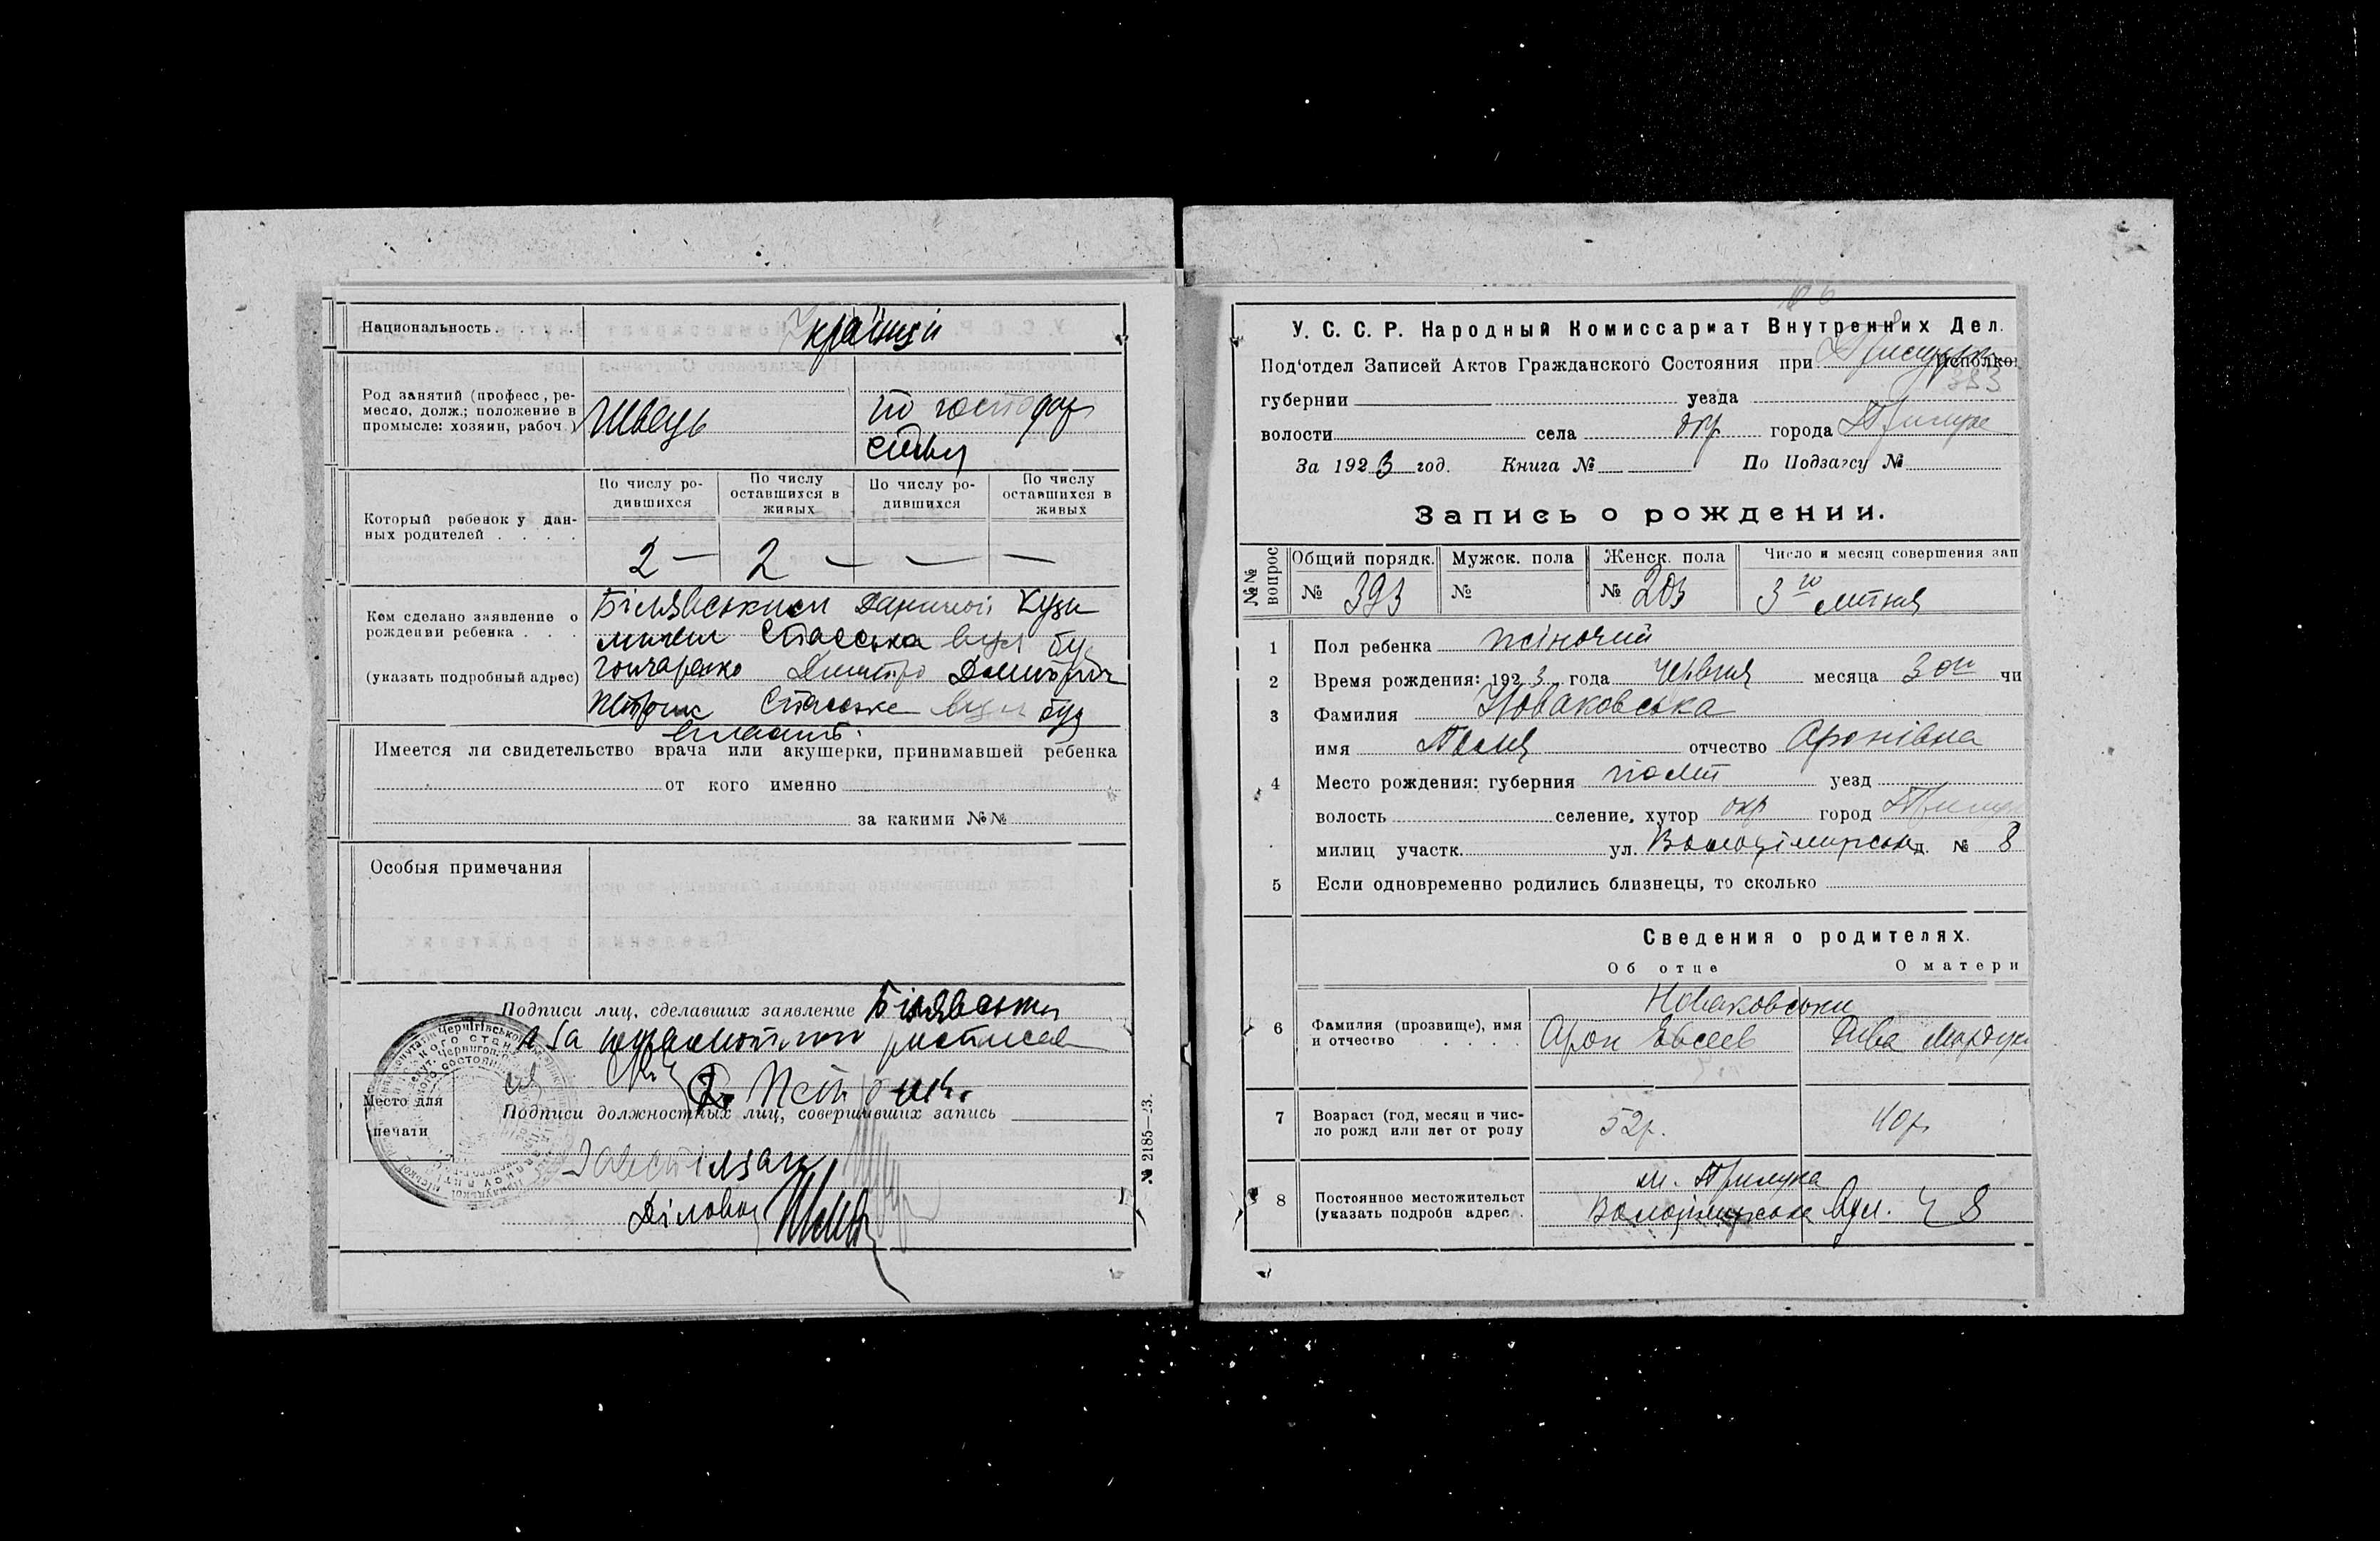 Национальность.
Українці
Род занятий (професс, ре-
месло, долж.; положение в
промысле: хозяин, рабоч.)
Швець
по господар
Который ребенок у дан-
ных родителей
По числу ро-
дившихся
По числу
оставшихся в
живых
По числу ро-
дившихся
По числу
оставшихся в
живых
2 — 2 — — —
Кем сделано заявление о
рождении ребенка
(указать подробный адрес)
Білявським Данилой Кузь
мичем Спасська вул бу
гончаренко Дмитро Дмитрович
Петрик Спаське вул буд
Имеется ли свидетельство врача или акушерки, принимавшей ребенка
от кого именно
за какими №№
Особыя примечания
Подписи лиц, сделавших заявление Білявський
а за розписав
Петрик.
Подписи должностных лиц, совершивших запись
Место для
печати
Діловод
№ 2185—23.
У. С. С. Р. Народный Комиссариат Внутренних Дел.
Под'отдел Записей Актов Гражданского Состояния при Исполко
393
губернии уезда
волости села окр города Прилуке
За 1923 год. Книга № По Подзагсу №
Запись о рождении.
№№
вопрос
Общий порядк. Мужск. пола Женск. пола Число и месяц совершения зап
№ 393 № № 203 3го липня
1 Пол ребенка жіночий
2 Время рождения: 1923 года червня месяца 3 чи
3 Фамилия Новаковська
имя Поля отчество Аронівна
4 Место рождения: губерния полт уезд
волость селение, хутор окр город Прилуке
милиц участк. ул. Володімирськ д. № 8
5 Если одновременно родились близнецы, то сколько
Сведения о родителях.
Об отце О матери
6 Фамилия (прозвище), имя
и отчество
Новаковськи
Арон Евсеев
7 Возраст (год, месяц и чис-
ло рожд или лет от роду
52р. 40р.
8 Постоянное местожительст
(указать подробн адрес
м. Прилука
Володімирська вул. ч 8